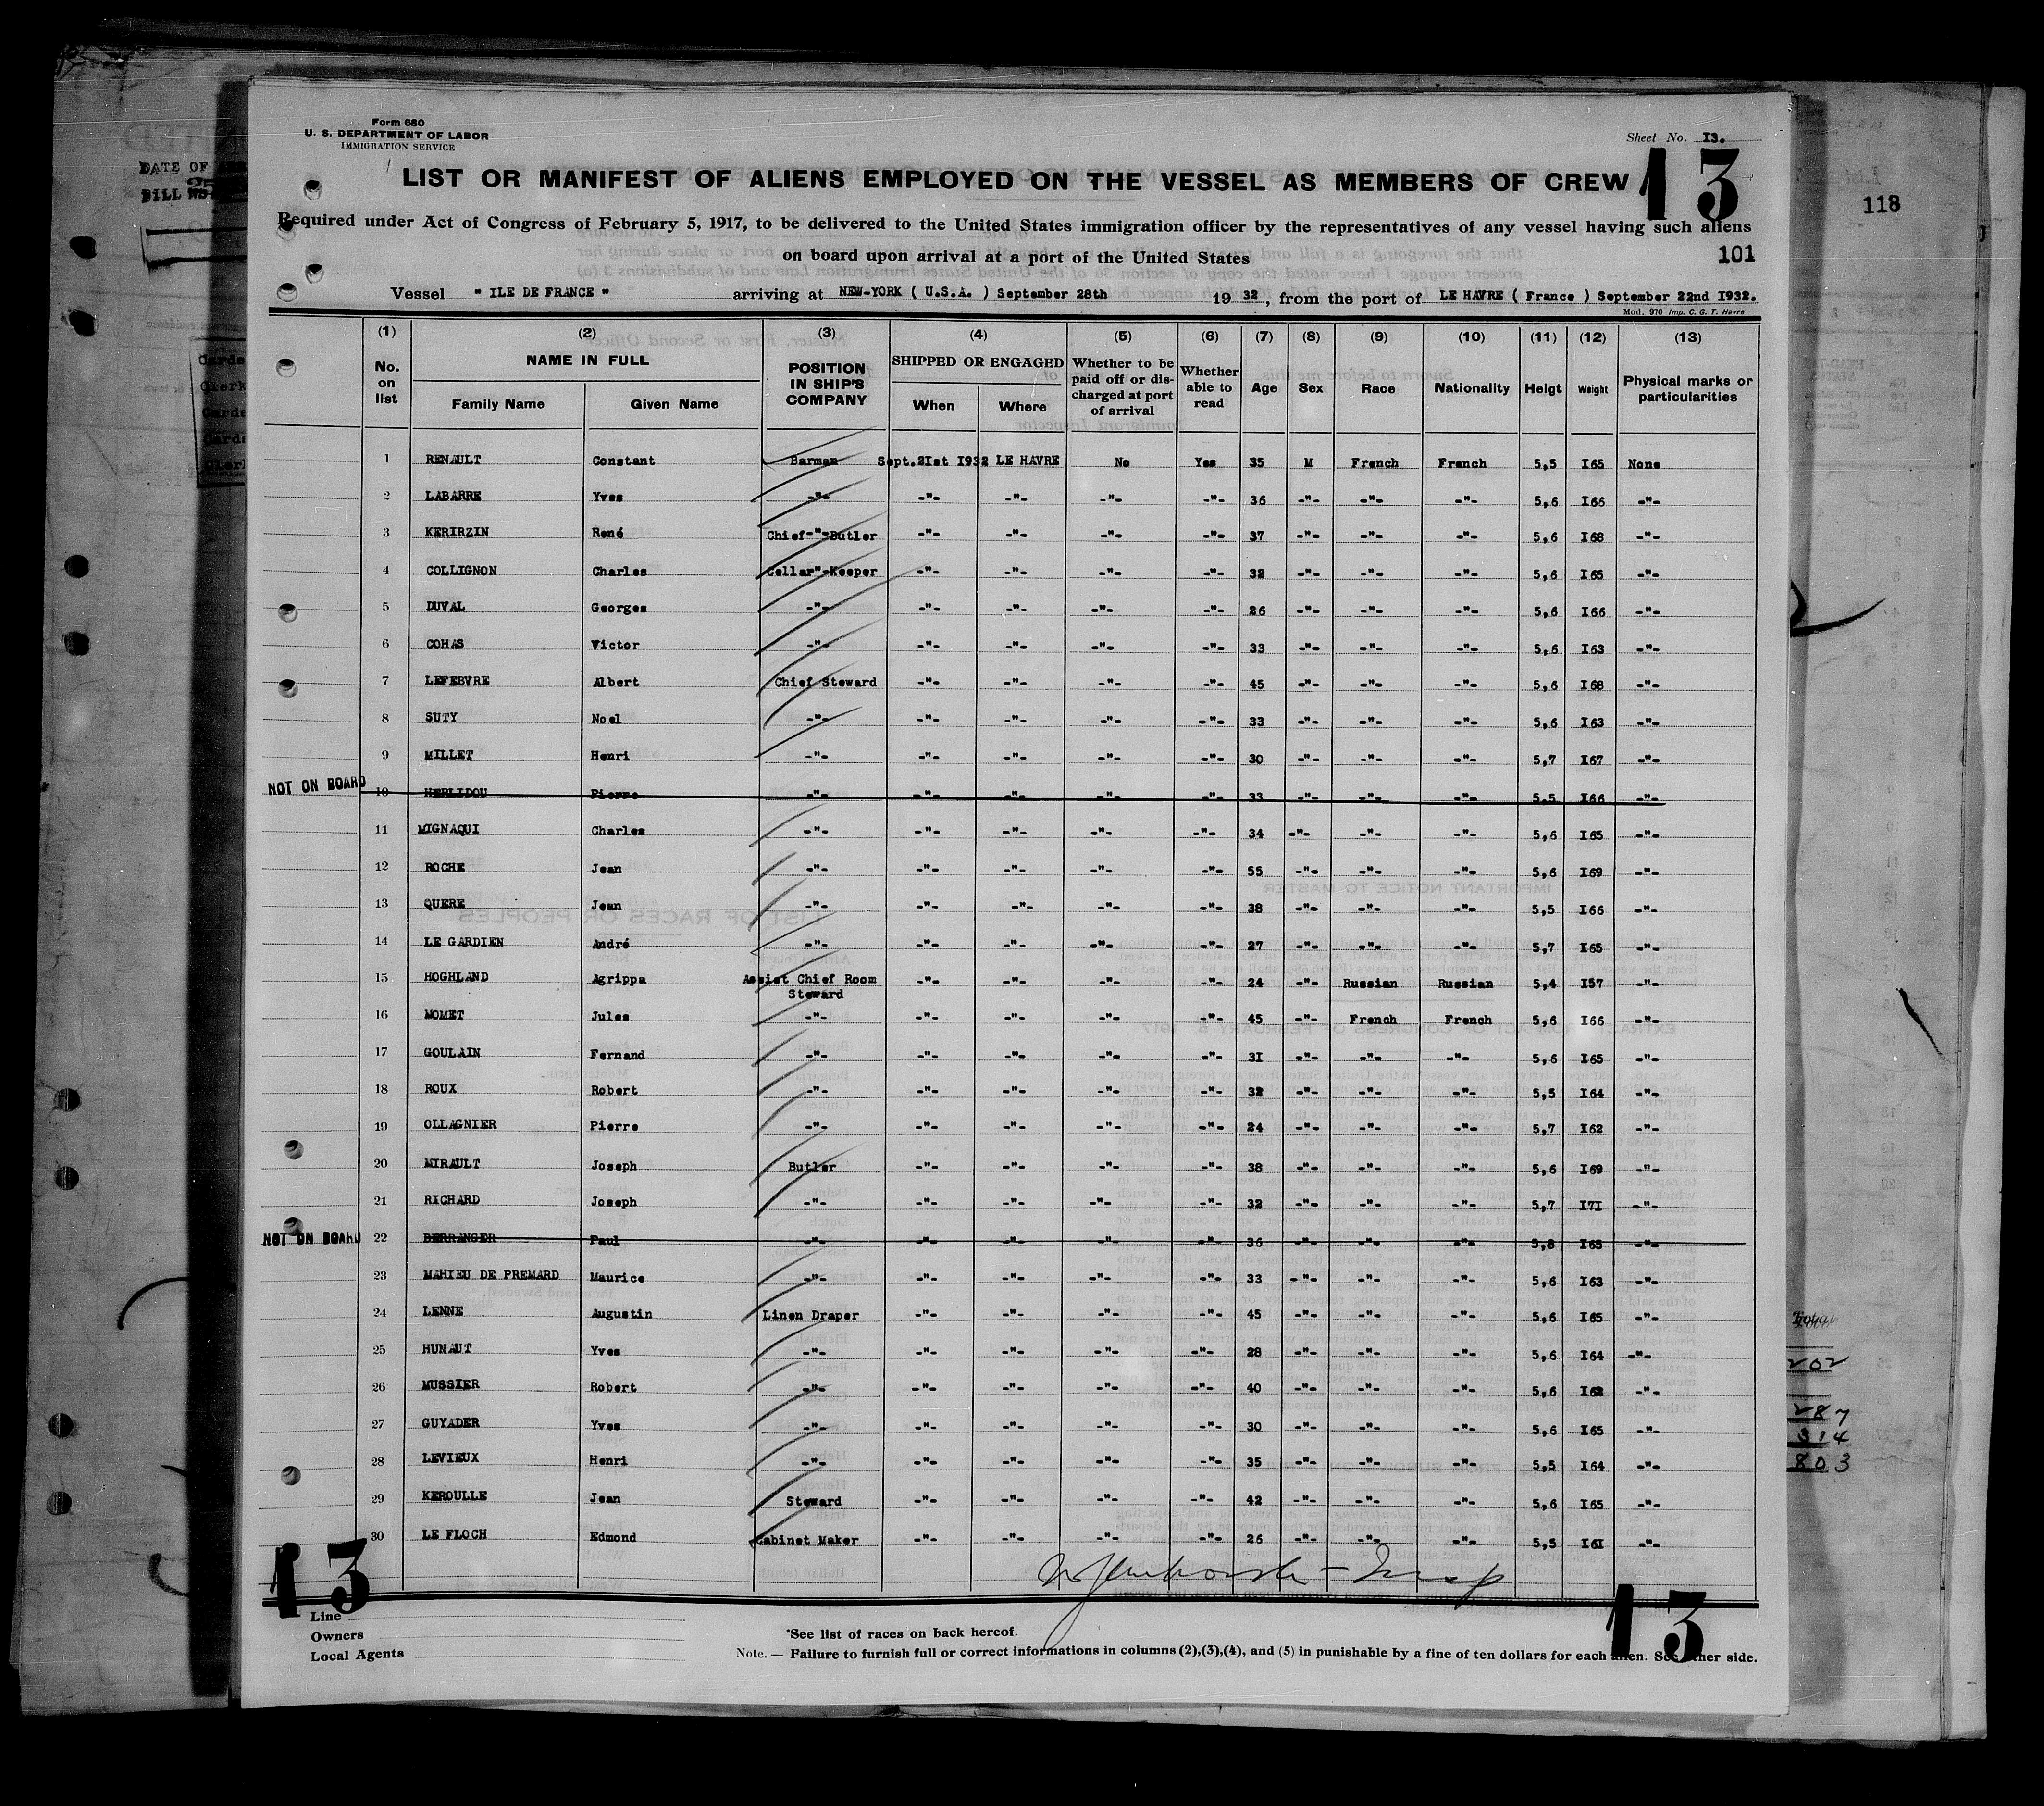 Form 680
U. S. DEPARTMENT OF LABOR
IMMIGRATION SERVICE
Sheet No. I3.
13
LIST OR MANIFEST OF ALIENS EMPLOYED ON THE VESSEL AS MEMBERS OF CREW
118
Required under Act of Congress of February 5, 1917, to be delivered to the United States immigration officer by the representatives of any vessel having such aliens
on board upon arrival at a port of the United States
101
Vessel " ILE DE FRANCE " arriving at NEW-YORK ( U.S.A. ) September 28th 19 32 , from the port of LE HAVRE ( France ) September 22nd I932.
Mod. 970 Imp. C. G. T. Havre
(1) (2) (3) (4) (5) (6) (7) (8) (9) (10) (11) (12) (13)
No. on list NAME IN FULL Family Name Given Name POSITION IN SHIP'S COMPANY SHIPPED OR ENGAGED When Where Whether to be paid off or discharged at port of arrival Whether able to read Age Sex Race Nationality Heigt Weight Physical marks or particularities
1 RENAULT Constant Barman Sept.2Ist I932 LE HAVRE No Yes 35 M French French 5,5 I65 None
2 LABARRE Yves -"- -"- -"- -"- -"- 36 -"- -"- -"- 5,6 I66 -"-
3 KERIRZIN René Chief-"-Butler -"- -"- -"- -"- 37 -"- -"- -"- 5,6 I68 -"-
4 COLLIGNON Charles Cellar"-Keeper -"- -"- -"- -"- 32 -"- -"- -"- 5,6 I65 -"-
5 DUVAL Georges -"- -"- -"- -"- -"- 26 -"- -"- -"- 5,6 I66 -"-
6 COHAS Victor -"- -"- -"- -"- -"- 33 -"- -"- -"- 5,6 I63 -"-
7 LEFEBVRE Albert Chief Steward -"- -"- -"- -"- 45 -"- -"- -"- 5,6 I68 -"-
8 SUTY Noel -"- -"- -"- -"- -"- 33 -"- -"- -"- 5,6 I63 -"-
9 MILLET Henri -"- -"- -"- -"- -"- 30 -"- -"- -"- 5,7 I67 -"-
NOT ON BOARD 10 HERLIDOU Pierre -"- -"- -"- -"- -"- 33 -"- -"- -"- 5,5 I66 -"-
11 MIGNAQUI Charles -"- -"- -"- -"- -"- 34 -"- -"- -"- 5,6 I65 -"-
12 ROCHE Jean -"- -"- -"- -"- -"- 55 -"- -"- -"- 5,6 I69 -"-
13 QUERE Jean -"- -"- -"- -"- -"- 38 -"- -"- -"- 5,5 I66 -"-
14 LE GARDIEN André -"- -"- -"- -"- -"- 27 -"- -"- -"- 5,7 I65 -"-
15 HOGHLAND Agrippa Assist Chief Room Steward -"- -"- -"- -"- 24 -"- Russian Russian 5,4 I57 -"-
16 MOMET Jules -"- -"- -"- -"- -"- 45 -"- French French 5,6 I66 -"-
17 GOULAIN Fernand -"- -"- -"- -"- -"- 3I -"- -"- -"- 5,6 I65 -"-
18 ROUX Robert -"- -"- -"- -"- -"- 32 -"- -"- -"- 5,5 I64 -"-
19 OLLAGNIER Pierre -"- -"- -"- -"- -"- 24 -"- -"- -"- 5,7 I62 -"-
20 MIRAULT Joseph Butler -"- -"- -"- -"- 38 -"- -"- -"- 5,6 I69 -"-
21 RICHARD Joseph -"- -"- -"- -"- -"- 32 -"- -"- -"- 5,7 I7I -"-
NOT ON BOARD 22 BERRANGER Paul -"- -"- -"- -"- -"- 36 -"- -"- -"- 5,8 I65 -"-
23 MAHIEU DE PREMARD Maurice -"- -"- -"- -"- -"- 33 -"- -"- -"- 5,6 I63 -"-
24 LENNE Augustin Linen Draper -"- -"- -"- -"- 45 -"- -"- -"- 5,6 I65 -"-
25 HUNAUT Yves -"- -"- -"- -"- -"- 28 -"- -"- -"- 5,6 I64 -"-
26 MUSSIER Robert -"- -"- -"- -"- -"- 40 -"- -"- -"- 5,6 I62 -"-
27 GUYADER Yves -"- -"- -"- -"- -"- 30 -"- -"- -"- 5,6 I65 -"-
28 LEVIEUX Henri -"- -"- -"- -"- -"- 35 -"- -"- -"- 5,5 I64 -"-
29 KEROULLE Jean Steward -"- -"- -"- -"- 42 -"- -"- -"- 5,6 I65 -"-
30 LE FLOCH Edmond Cabinet Maker -"- -"- -"- -"- 26 -"- -"- -"- 5,5 I6I -"-
202
287
314
803
13
13
Line
Owners
Local Agents
*See list of races on back hereof.
Note. — Failure to furnish full or correct informations in columns (2),(3),(4), and (5) in punishable by a fine of ten dollars for each alien. See other side.